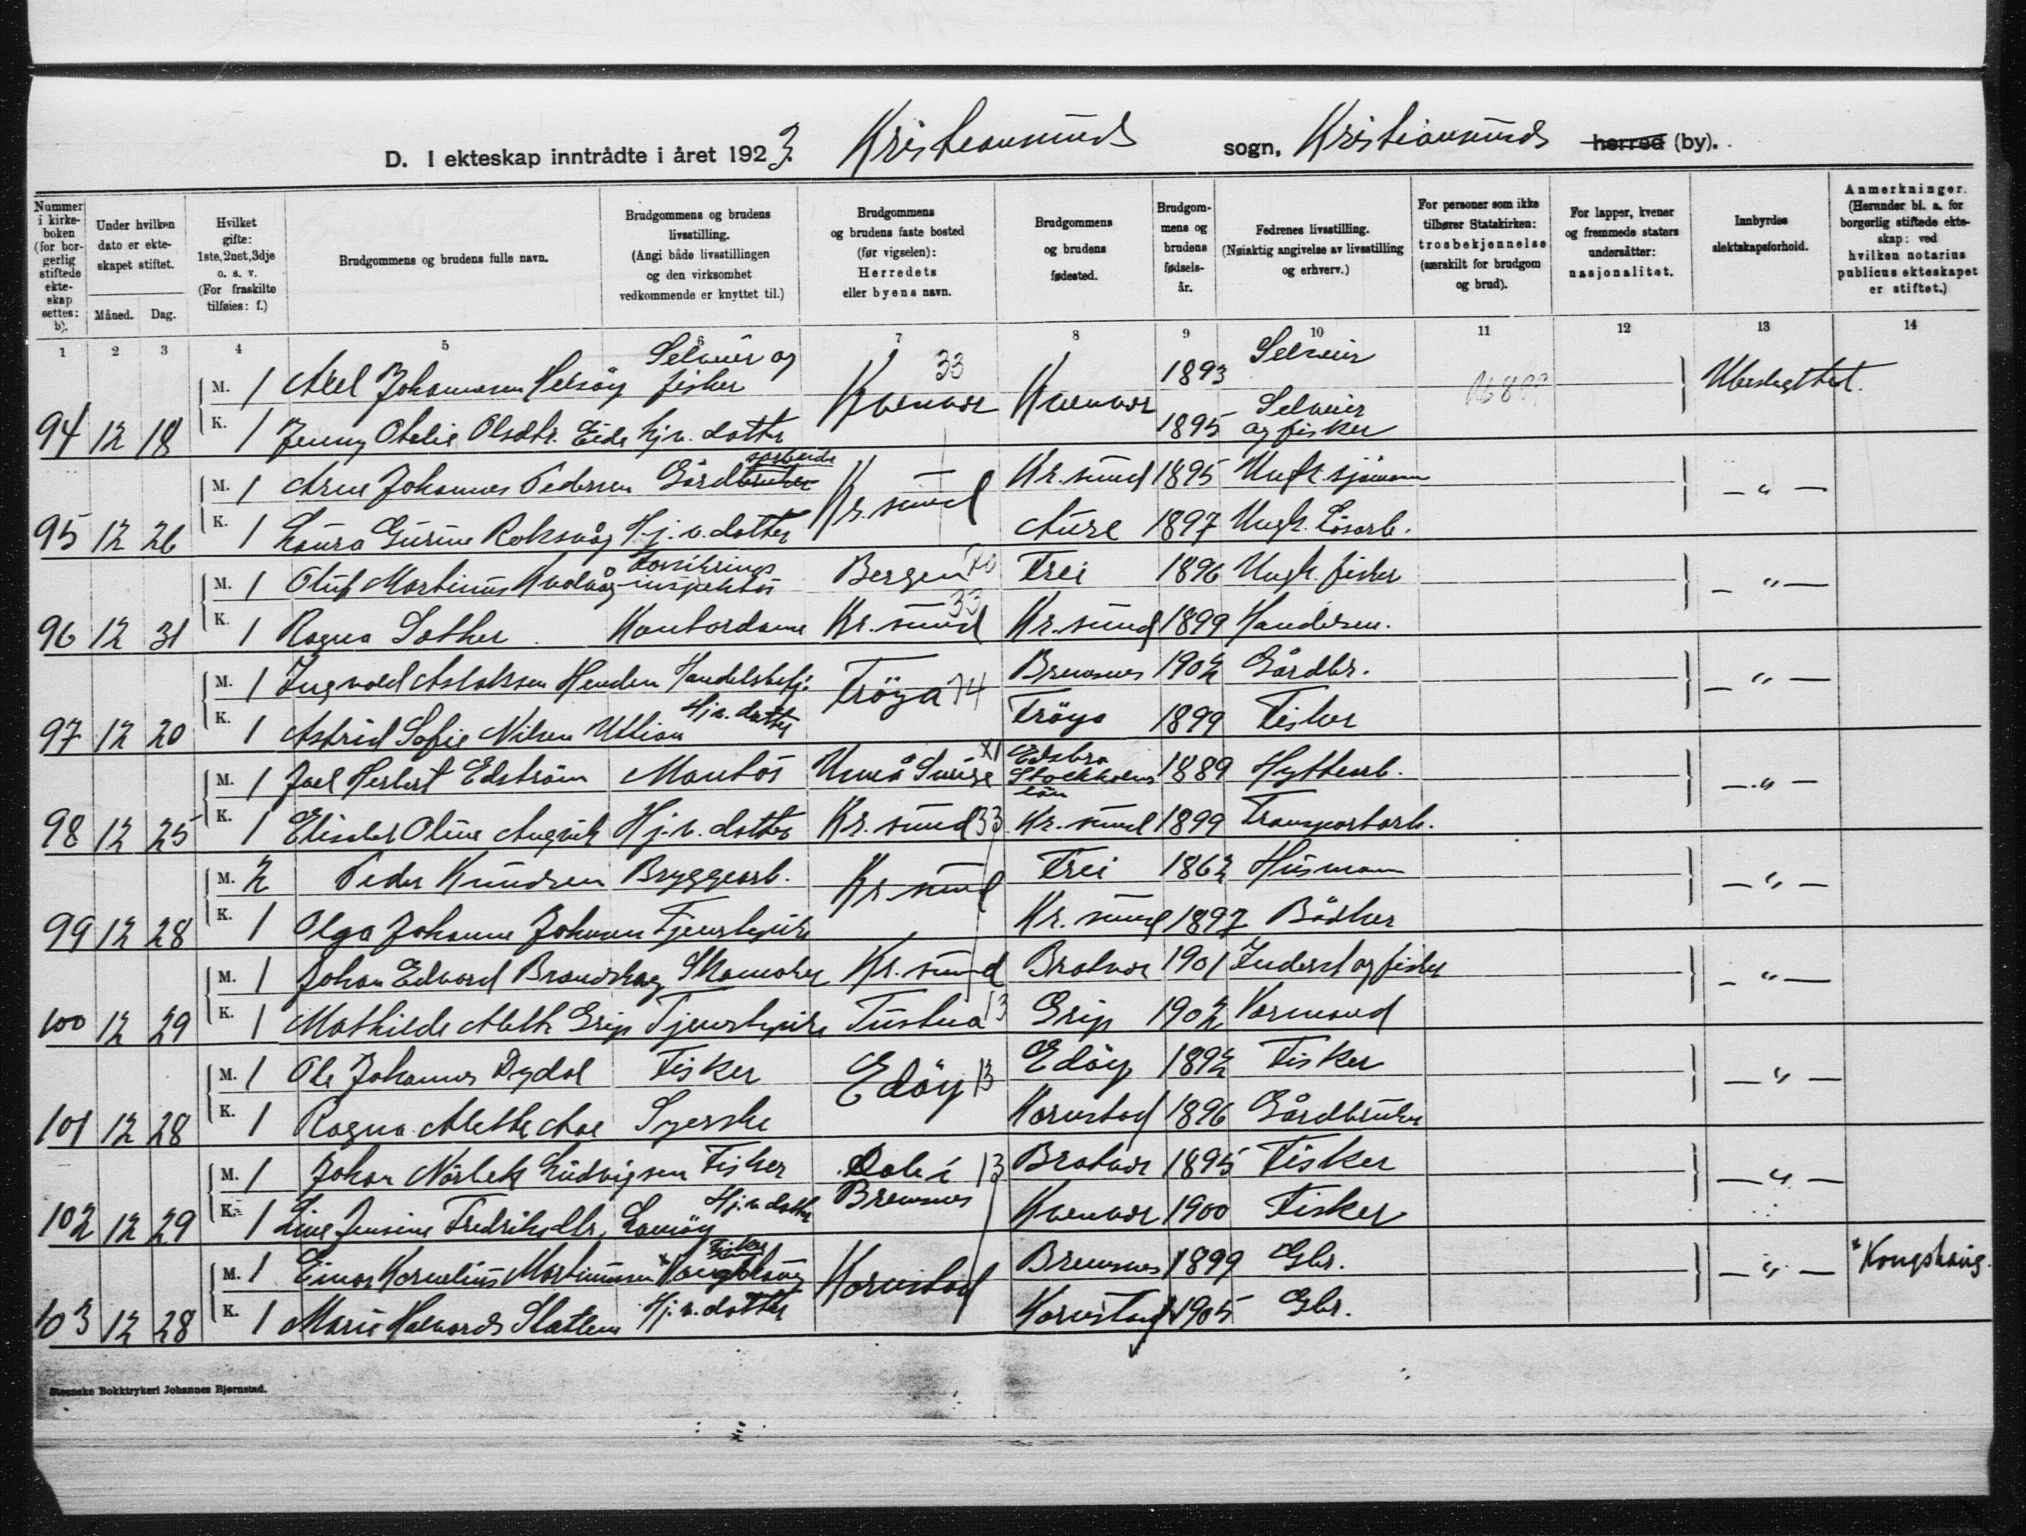 D. I ekteskap inntrådte i året 1923. Kristiansunds sogn, Kristiansunds herred (by).
Nummer i kirke-boken (for bor-gerlig stiftede ekte-skap settes: b).
Under hvilken dato er ekte-skapet stiftet.
Måned. Dag.
Hvilket gifte: 1ste, 2net, 3dje o. s. v. (For fraskilte tilføies: f.)
Brudgommens og brudens fulle navn.
Brudgommens og brudens livsstilling. (Angi både livsstillingen og den virksomhet vedkommende er knyttet til.)
Brudgommens og brudens faste bosted (før vigselen): Herredets eller byens navn.
Brudgommens og brudens fødested.
Brudgom-mens og brudens fødsels-år.
Fedrenes livsstilling. (Nøiaktig angivelse av livsstilling og erhverv.)
For personer som ikke tilhører Statskirken: trosbekjennelse (særskilt for brudgom og brud).
For lapper, kvener og fremmede staters undersåtter: nasjonalitet.
Innbyrdes slektskapsforhold.
Anmerkninger. (Herunder bl. a. for borgerlig stiftede ekte-skap: ved hvilken notarius publicus ekteskapet er stiftet.)
1 2 3 4 5 6 7 8 9 10 11 12 13 14
M. 1 Axel Johannesen Helsöy Selveier og fisker Kvenvær 33 Kvenvær 1893 Selveier Ubeslegtet.
94 12 18 K. 1 Jenny Otelie Olsdtr. Eide hj.v. datter 1895 Selveier og fisker
M. 1 Arne Johannes Pedersen Gårdbruker Kr.sund Kr.sund 1895 Ungk. sjömann — " —
95 12 26 K. 1 Laura Gurine Roksvåg Hj.v. datter Aure 1897 Ungk. Lösarb.
M. 1 Oluf Martinus Kvalvåg inspektör Bergen 70 Frei 1896 Ungk. fisker — " —
96 12 31 K. 1 Ragna Sather Kontordame Kr.sund 33 Kr.sund 1899
M. 1 Ingvald Aslaksen Henden Handelsbetj. Fröya 74 Bremsnes 1902 Gårdbr. — " —
97 12 20 K. 1 Astrid Sofie Nilsen Uttian Hj.v. datter Fröya 1899 Fisker
M. 1 Joel Herbert Edström Montör Umeå Sverige XI Edsbro Stockholms län 1889 Hyttearb. — " —
98 12 25 K. 1 Elisabet Oline Angvik Hj.v. datter Kr.sund 33 Kr.sund 1899 Transportarb.
M. 2 Peder Knudsen Bryggearb. Kr.sund Frei 1862 Husmann — " —
99 12 28 K. 1 Olga Johanne Johnsen Tjenestepike Kr.sund 1897 Bödker
M. 1 Johan Edvard Brandskog Skomaker Kr.sund Bratvær 1901 Inderst og fisker — " —
100 12 29 K. 1 Mathilde Alette Grip Tjenestepike Tustna 13 Grip 1902 Formand
M. 1 Ole Johannes Dydal Fisker Edöy 13 Edöy 1892 Fisker — " —
101 12 28 K. 1 Ragna Alette Aae Syerske Kornstad 1896 Gårdbruker
M. 1 Johan Norbek Ludvigsen Fisker Dale i Bremsnes 13 Bratvær 1895 Fisker — " —
102 12 29 K. 1 Line Jensine Fredriksdtr. Lamöy Hj.v. datter Kvenvær 1900 Fisker
M. 1 Einar Kornelius Martinussen × Fisker Kornstad Bremsnes 1899 Gbr. — " — × Kongshaug.
103 12 28 K. 1 Marie Halvards Slatlem Hj.v. datter Kornstad 1905 Gbr.
Steenske Bokktrykeri Johannes Bjørnstad.